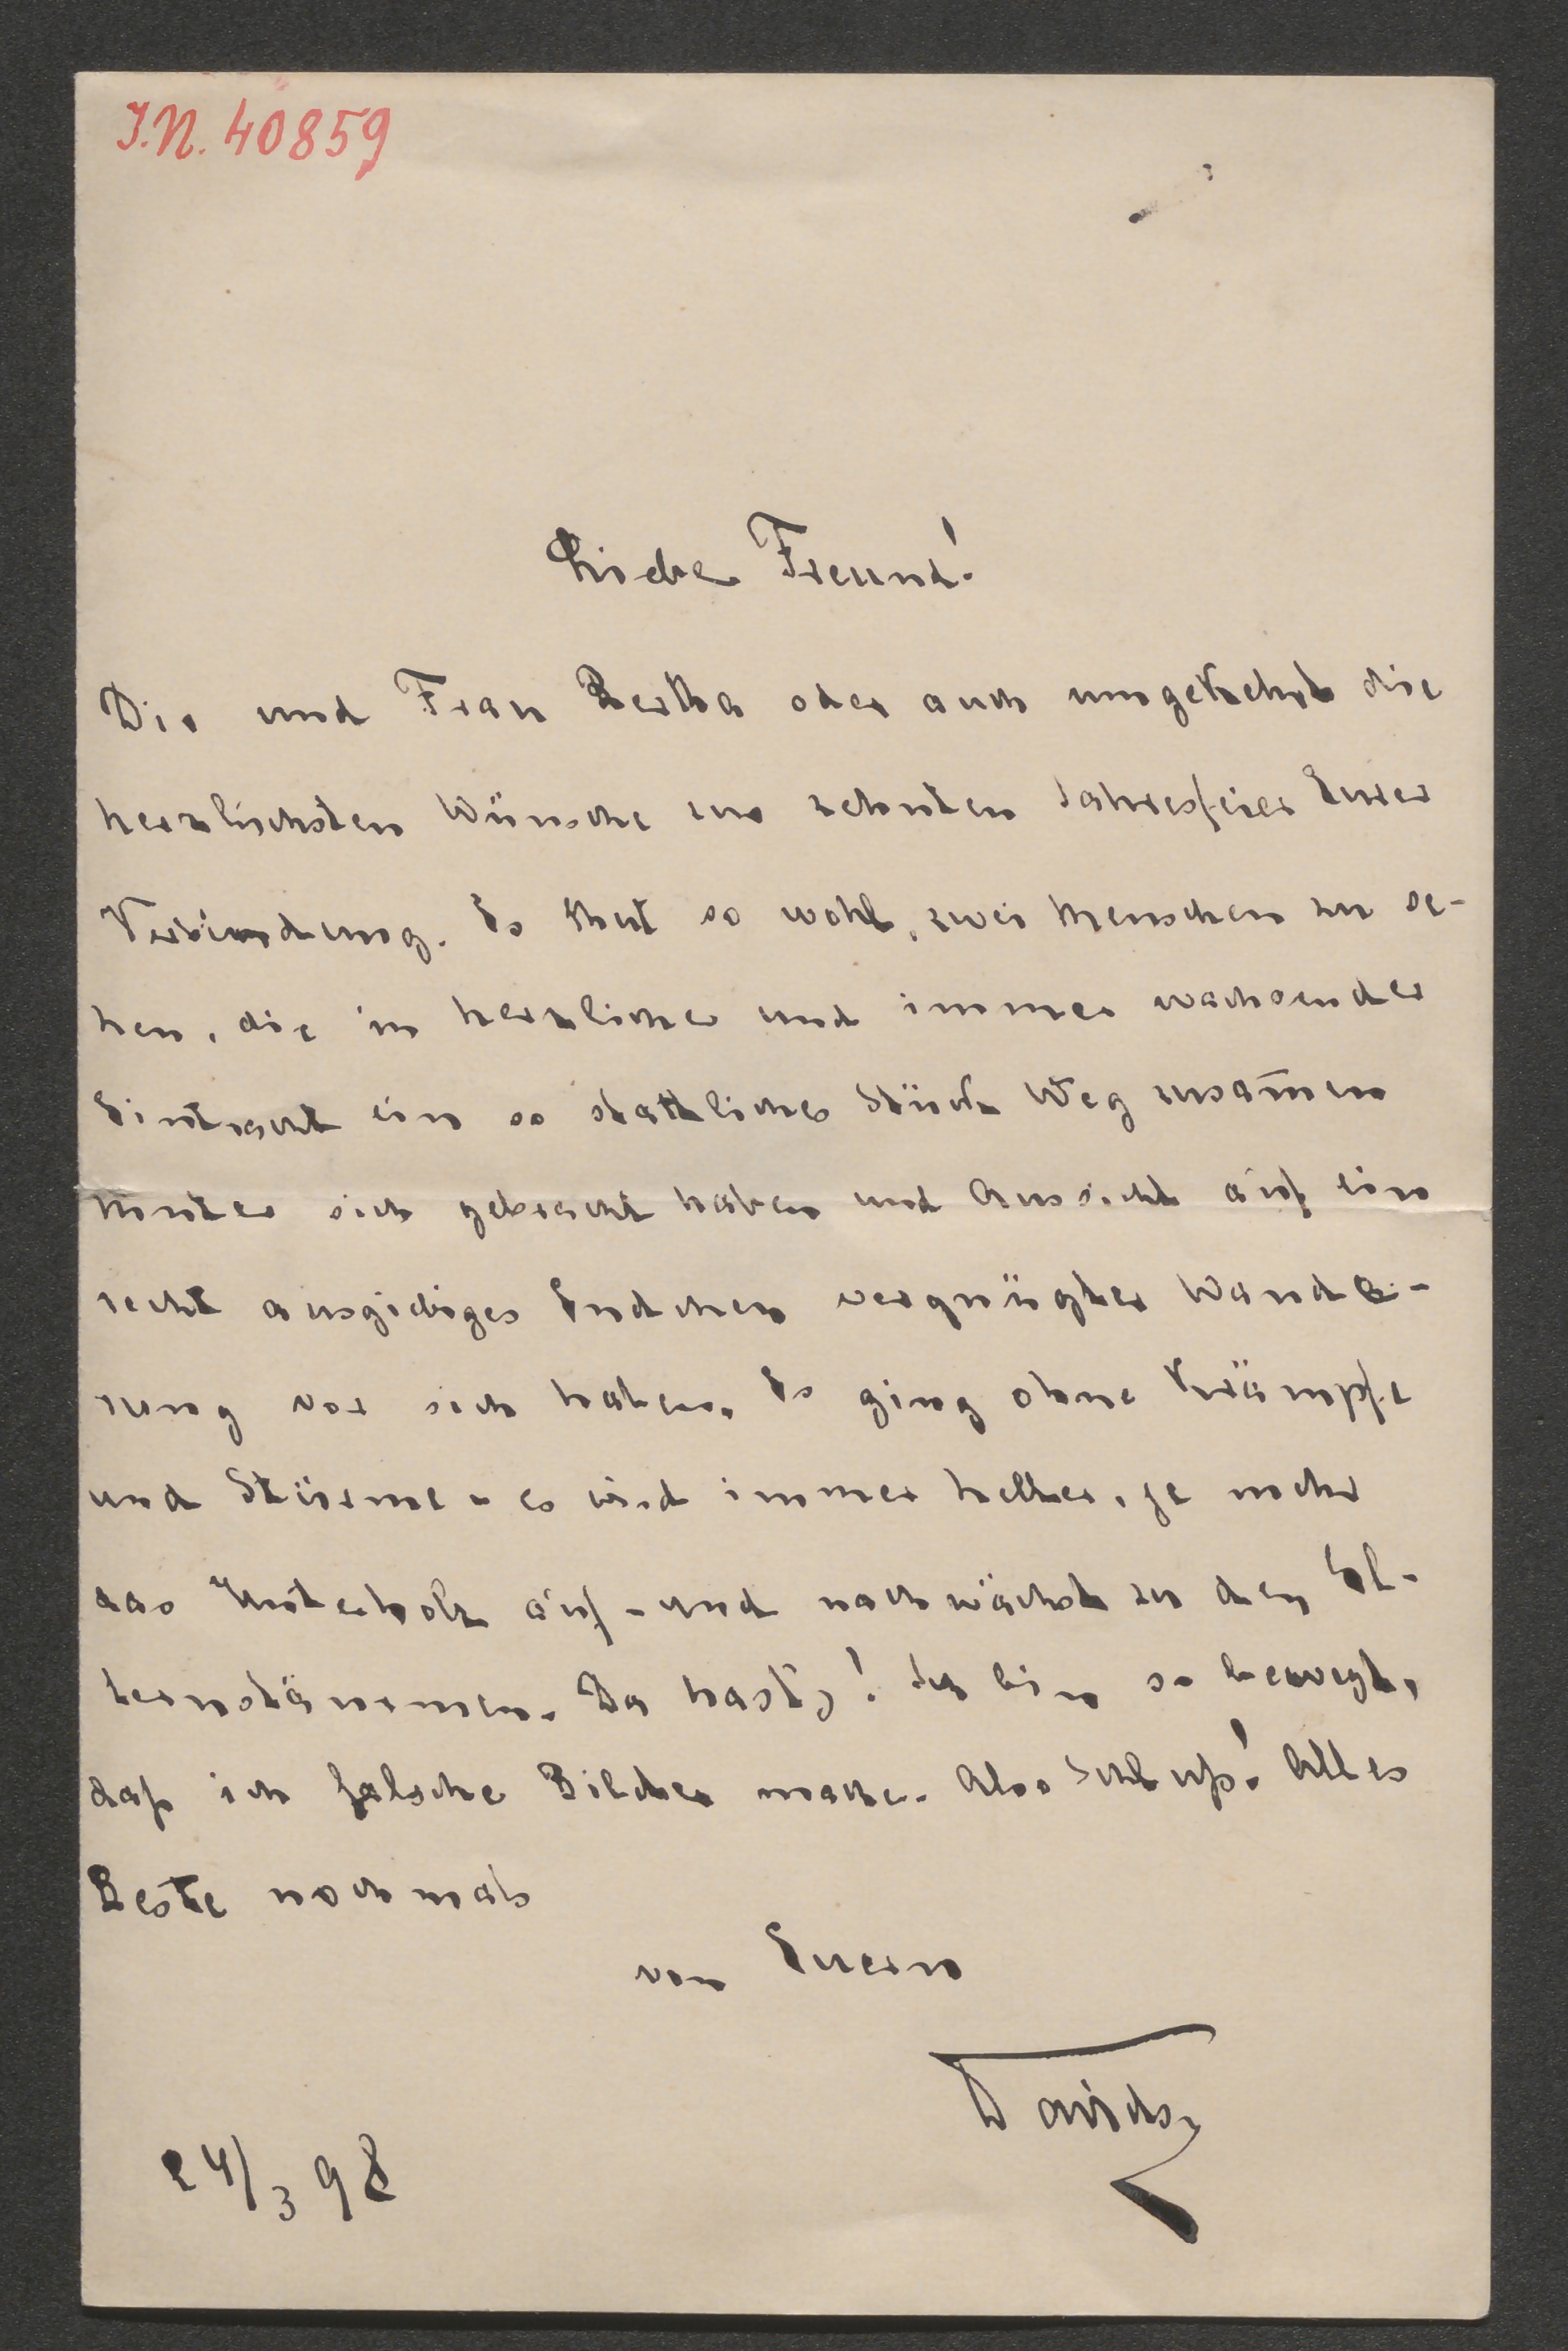 I.N. 40859
Lieber Freund!
Dir und Frau Bertha oder auch umgekehrt die
herzlichsten Wünsche zur zehnten Jahresfeier Eurer
Verbindung. Es thut so wohl, zwei Menschen zu se-
hen, die in herzlicher und immer wachsender
Eintracht ein so stattliches Stück Weg zusam̅en
hinter sich gebracht haben und Aussicht auf ein
recht ausgiebiges Endchen vergnügter Wande-
rung vor sich haben. Es ging ohne Krämpfe
und Stürme - es wird immer heller, je mehr
das Unterholz auf- und nachwächst zu den El-
ternstämmen. Da hast's! Ich bin so bewegt,
daß ich falsche Bilder mache. Also Schluß! Alles
Beste nochmals
von Euerm
24/3 98